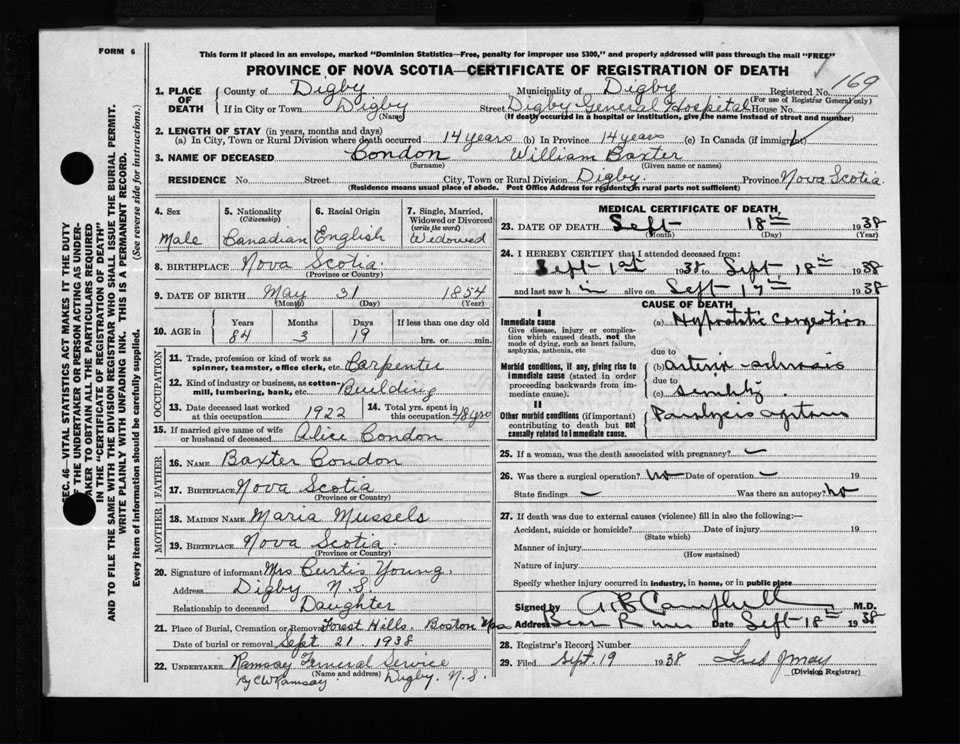 FORM 6
This form if placed in an envelope, marked "Dominion Statistics—Free, penalty for improper use $300," and properly addressed will pass through the mail "FREE"
PROVINCE OF NOVA SCOTIA—CERTIFICATE OF REGISTRATION OF DEATH
169
1. PLACE OF DEATH County of Digby Municipality of Digby Registered No. (For use of Registrar General only)
If in City or Town Digby (Name) Street Digby General Hospital House No.
(If death occurred in a hospital or institution, give the name instead of street and number)
2. LENGTH OF STAY (in years, months and days)
(a) In City, Town or Rural Division where death occurred 14 years (b) In Province 14 years (c) In Canada (if immigrant)
3. NAME OF DECEASED Condon William Baxter
(Surname) (Given name or names)
RESIDENCE No. Street City, Town or Rural Division Digby. Province Nova Scotia.
(Residence means usual place of abode. Post Office Address for residents in rural parts not sufficient)
4. Sex Male
5. Nationality (Citizenship) Canadian
6. Racial Origin English
7. Single, Married, Widowed or Divorced (write the word) Widowed
8. BIRTHPLACE Nova Scotia.
(Province or Country)
9. DATE OF BIRTH May 31 1854
(Month) (Day) (Year)
10. AGE in Years 84 Months 3 Days 19 If less than one day old hrs. or min.
OCCUPATION
11. Trade, profession or kind of work as spinner, teamster, office clerk, etc. Carpenter
12. Kind of industry or business, as cotton-mill, lumbering, bank, etc. Building
13. Date deceased last worked at this occupation 1922
14. Total yrs. spent in this occupation 48 yrs
15. If married give name of wife or husband of deceased Alice Condon
FATHER
16. NAME Baxter Condon
17. BIRTHPLACE Nova Scotia
(Province or Country)
MOTHER
18. MAIDEN NAME Maria Mussels
19. BIRTHPLACE Nova Scotia.
(Province or Country)
20. Signature of informant Mrs Curtis Young.
Address Digby N.S.
Relationship to deceased Daughter
21. Place of Burial, Cremation or Removal Forest Hills. Boston Mass
Date of burial or removal Sept 21. 1938
22. UNDERTAKER Ramsay Funeral Service
(Name and address) Digby. N.S.
By CW Ramsay.
MEDICAL CERTIFICATE OF DEATH
23. DATE OF DEATH Sept 18th 1938
(Month) (Day) (Year)
24. I HEREBY CERTIFY that I attended deceased from:
Sept 1st 1938 to Sept 18th 1938
and last saw him alive on Sept 17th 1938
CAUSE OF DEATH
I
Immediate cause (a) Hypostatic Congestion
Give disease, injury or complication which caused death, not the mode of dying, such as heart failure, asphyxia, asthenia, etc
due to
Morbid conditions, if any, giving rise to immediate cause (stated in order proceeding backwards from immediate cause).
(b) Arterio-sclerosis
due to
(c) Senility
II
Other morbid conditions (if important) contributing to death but not causally related to immediate cause.
Paralysis agitans
25. If a woman, was the death associated with pregnancy? –
26. Was there a surgical operation? No Date of operation – 19
State findings – Was there an autopsy? No
27. If death was due to external causes (violence) fill in also the following:—
Accident, suicide or homicide? Date of injury 19
(State which)
Manner of injury
(How sustained)
Nature of injury
Specify whether injury occurred in industry, in home, or in public place
Signed by A B Campbell M.D.
Address Bear River Date Sept 18th 1938
28. Registrar's Record Number
29. Filed Sept. 19 1938
(Division Registrar)
SEC. 46—VITAL STATISTICS ACT MAKES IT THE DUTY
OF THE UNDERTAKER OR PERSON ACTING AS UNDER-
TAKER TO OBTAIN ALL THE PARTICULARS REQUIRED
IN THE "CERTIFICATE OF REGISTRATION OF DEATH"
AND TO FILE THE SAME WITH THE DIVISION REGISTRAR WHO SHALL ISSUE THE BURIAL PERMIT.
WRITE PLAINLY WITH UNFADING INK. THIS IS A PERMANENT RECORD.
Every item of information should be carefully supplied. (See reverse side for instructions.)